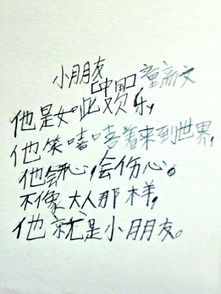 小朋友
他是如此欢乐,
他笑嘻嘻着来到世界,
他会开心,会伤心。
不像大人那样,
他就是小朋友。